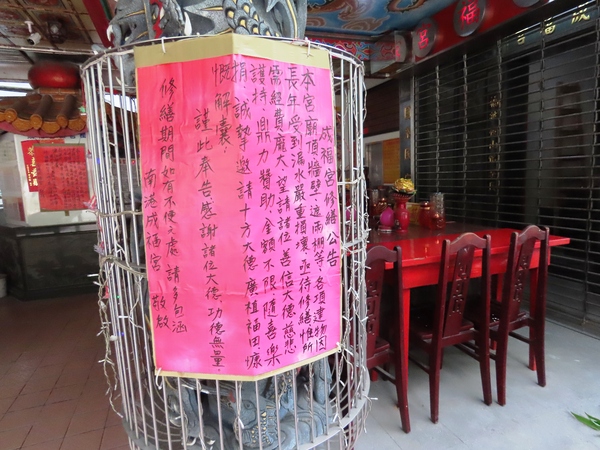 成福宮修繕公告
本宮廟頂牆壁、遮雨棚等、各項建物因
長年受到漏水嚴重損壞、亟待修繕惟所
需經費龐大、望請諸位善信大德慈悲
護持、鼎力贊助、金額不限隨喜樂
捐、誠摯邀請十方大德廣植福田、慷
慨解囊。
謹此奉告感謝諸位大德、功德無量、
修繕期間如有不便之處、請多包涵
南港成福宮 敬啟